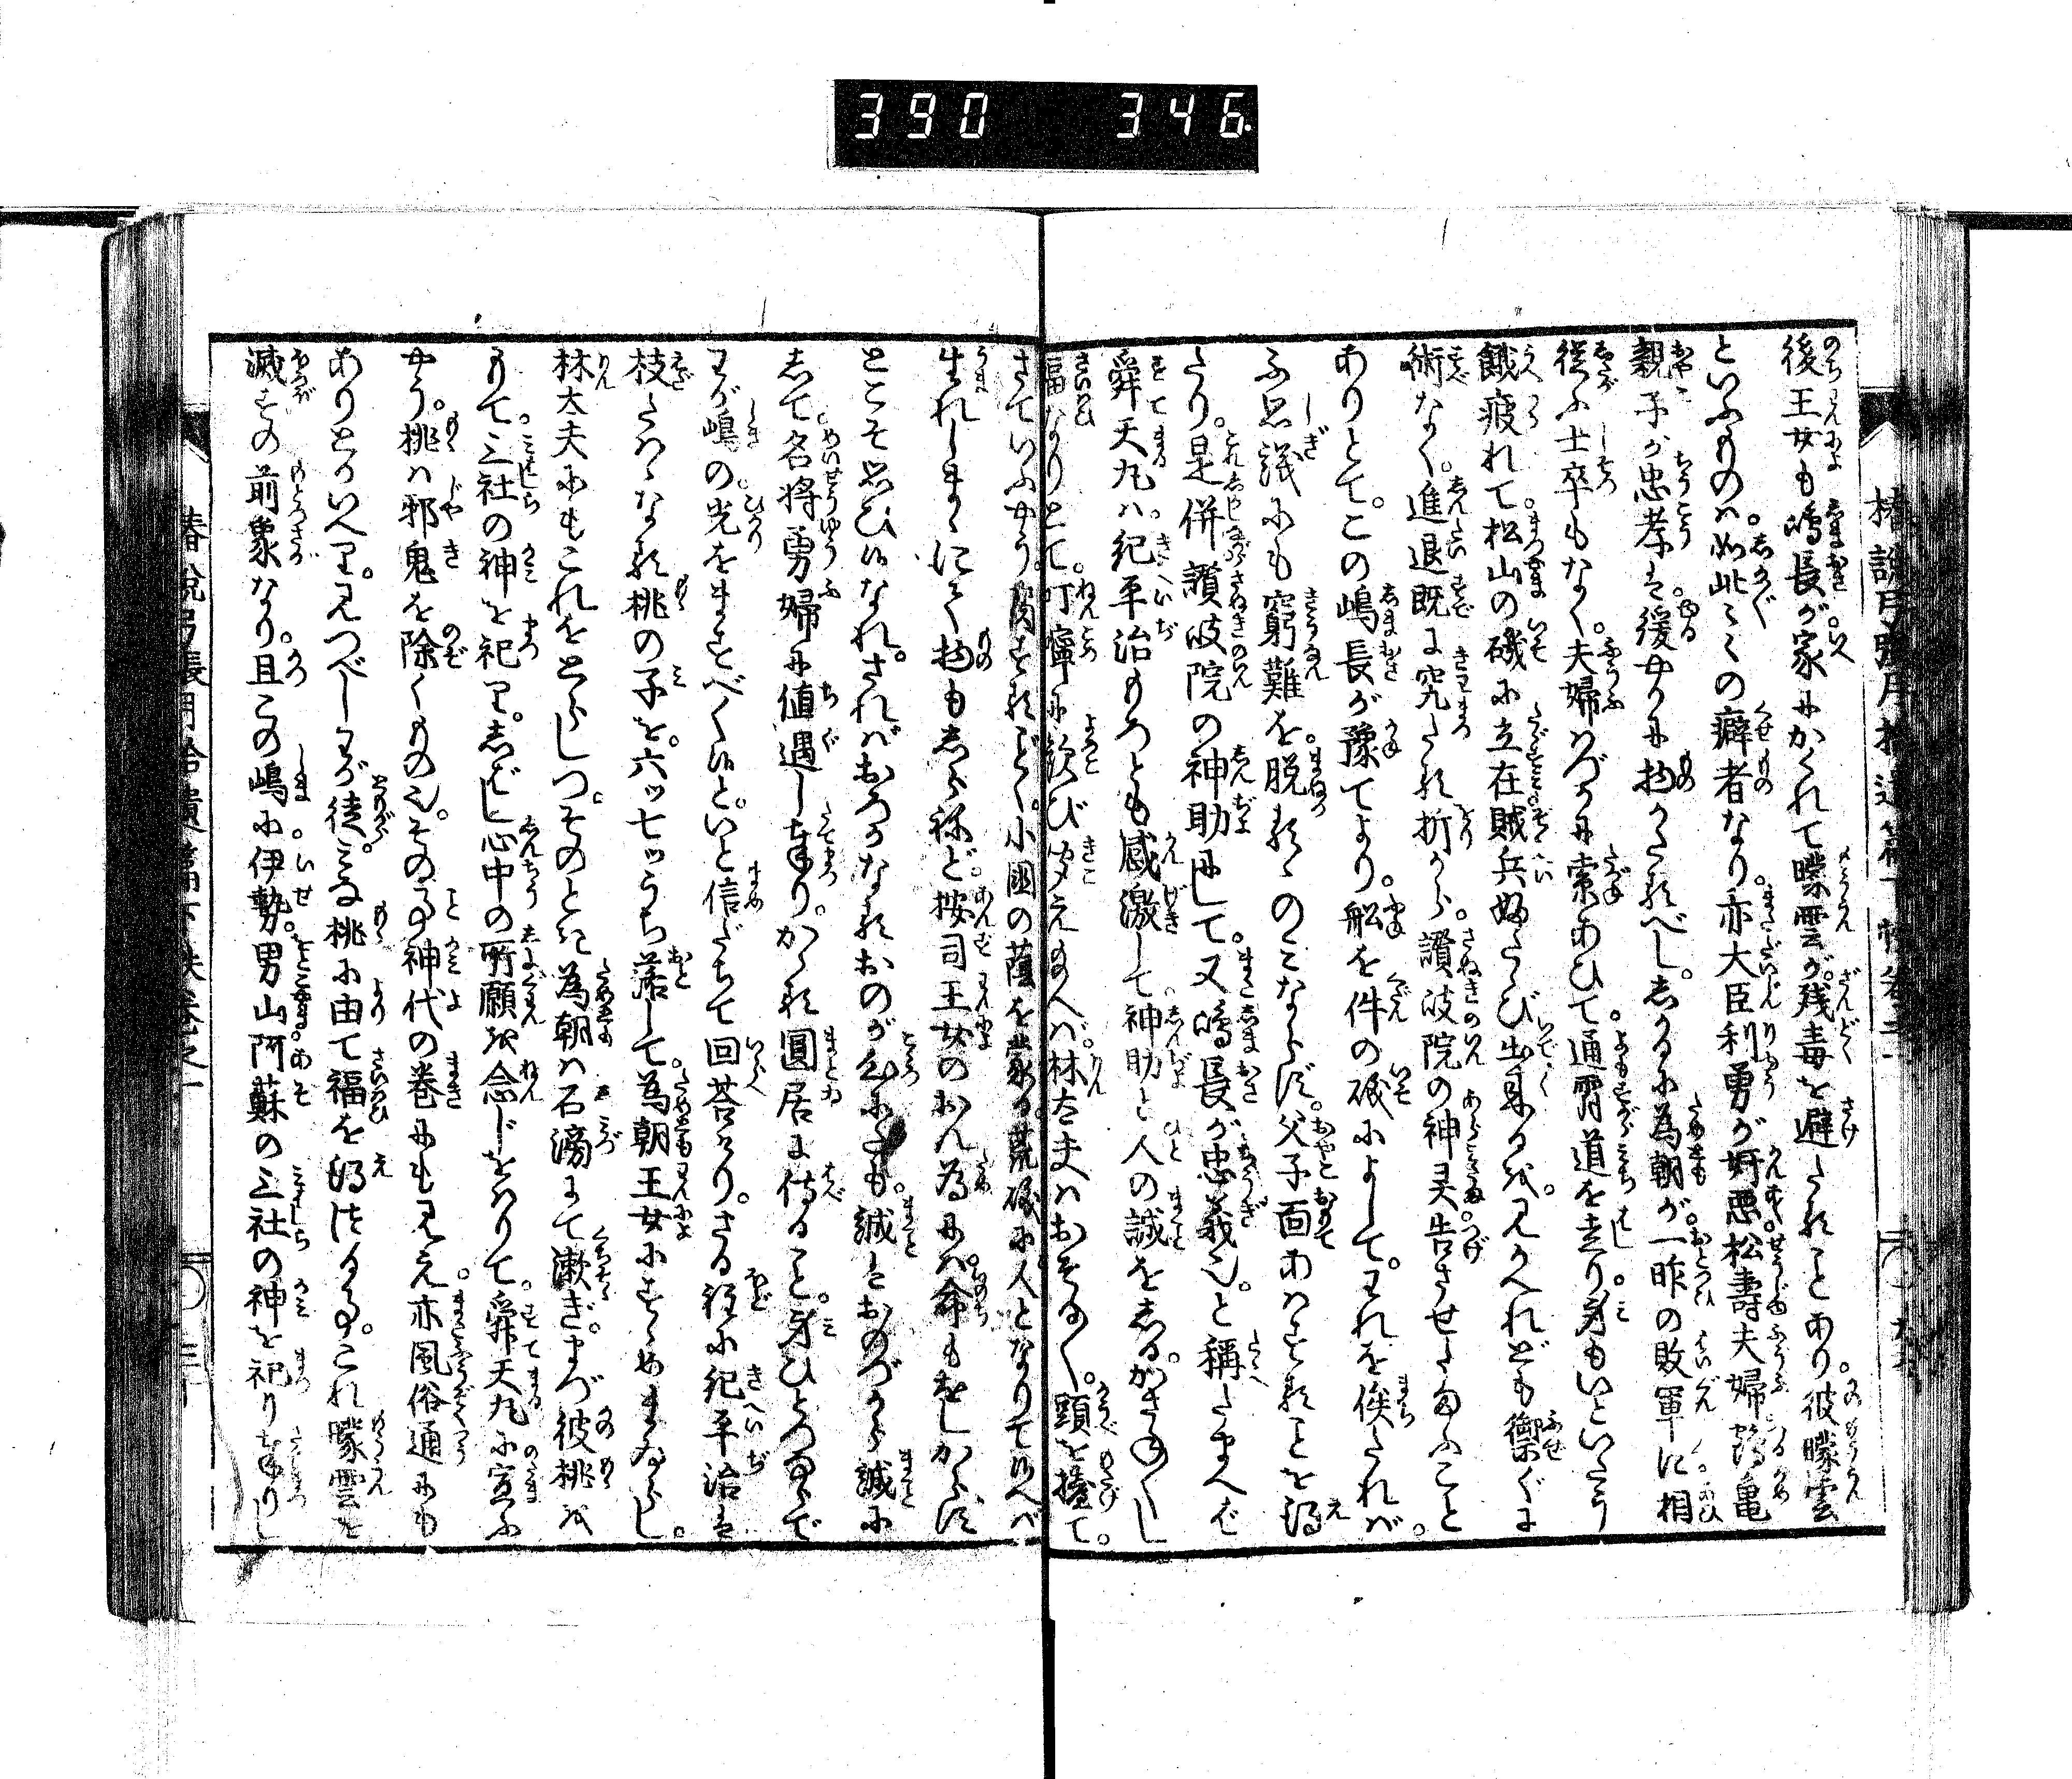 390 346
後王女も嶋長が家にかくれて曚雲が残毒を避たることあり。彼曚雲
といふものは。如此〻〻の癖者なり。亦大臣利勇が奸悪。松壽夫婦鶴亀
親子が忠孝を。緩やかに物がたるべし。しかるに為朝が。一昨の敗軍に。相
従ふ士卒もなく。夫婦はづかに索あひて。通霄道を走り。身もいといたう
餓疲れて。松山の磯に立在。賊兵ふたゝび出来るを。見かへれども禦ぐに
術なく。進退既に究たる折から。讃岐院の神灵。告させたまふこと
ありとて。この嶋長が豫てより。船を件の磯によして。われを俟たれば。
ふ思議にも窮難を。脱るゝのみならず。父子面あはすることを得
たり。是併讃岐院の神助にして。又嶋長が忠義也。と稱たまへば
舜天丸は。紀平治もろとも感激して。神助と人の誠をしる。かさね〴〵し
福なりとて。叮嚀に歓び聞え給へば。林太夫はおそる〳〵。頭を擡て。
さていふやう。賤するどく。小國の蔭を蒙る。荒磯に人となりて候へば
生れしまゝにて。物もしらねど。按司王女のおん為には。命もをしからず
とこそ思ひ候なれ。さればおろかなるおのが心にも。誠をおのづから誠に
して。名将勇婦に値遇し奉り。かゝる圓居に侍ること。身ひとつならで
わが嶋の。光をますべく候と。いと信だちて回荅けり。さる程に紀平治は
枝たはゝなる桃の子を。六ッ七ッうち落して。為朝王女にすゝめまゐらし。
林太夫にもこれをとらしつ。そのとき為朝は。石滂にて漱ぎ。まづ彼桃を
もて。三社の神を祀り。しばし心中の所願を念じをはりて。舜天丸に宣ふ
やう。桃は邪鬼を除くもの也。その事神代の巻にも見え。亦風俗通にも
ありとかいへり。見つべしわが徒。この桃に由て福を得たる事。これ曚雲を
滅すの前象なり。且この嶋に。伊勢。男山。阿蘇の三社の神を祀り奉りし